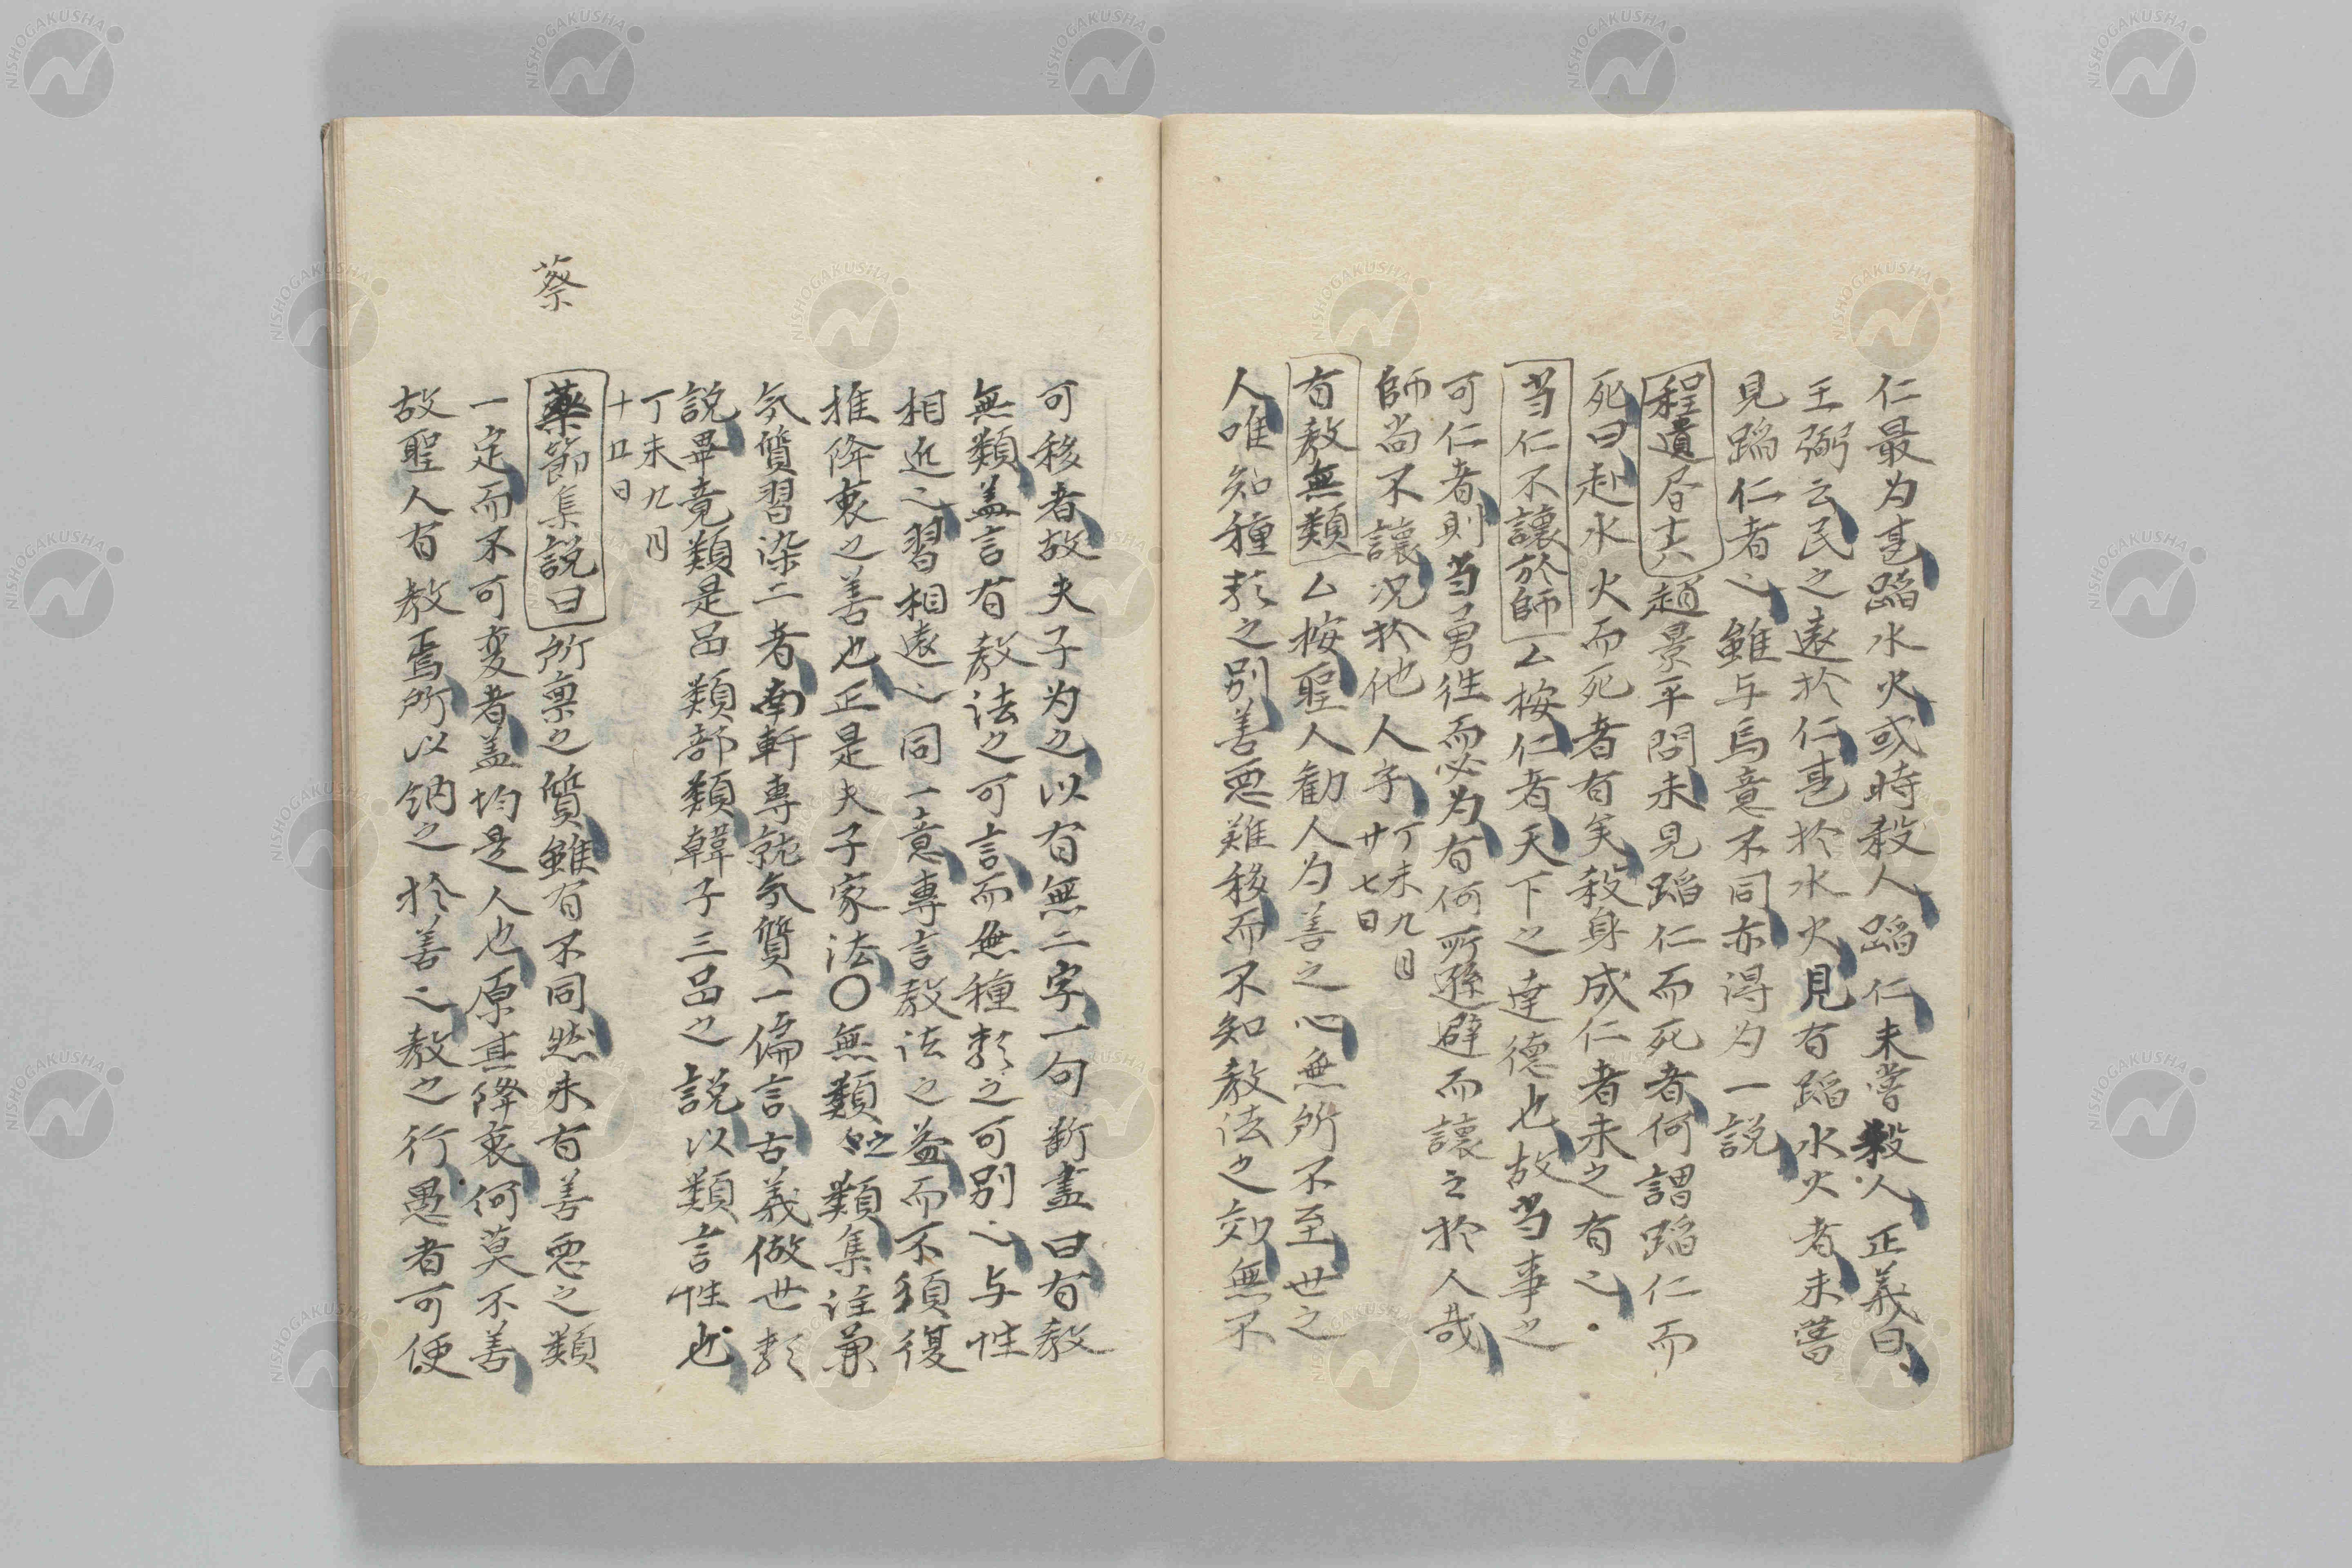 仁最为甚蹈水火或時殺人蹈仁未嘗殺人正義曰
王弼云民之遠於仁甚於水火見有蹈水火者未嘗
見蹈仁者也雖与馬意不同亦得为一説
程遺昏十六趙景平問未見蹈仁而死者何謂蹈仁而
死曰赴水火而死者有矣殺身成仁者未之有也
当仁不讓於師厶按仁者天下之達德也故当事之
可仁者則当勇往而必为有何所遜避而讓之於人哉
師尚不讓况於他人乎丁未九月
廿七日
有教無類厶按聖人勧人为善之心無所不至世之
人唯知種類之別善悪難移而不知教法之效無不
可移者故夫子为之以有無二字一句断盡曰有教
無類盖言有教法之可言而無種類之可別也与性
相近也習相遠也同一意專言教法之益而不須復
推降衷之善也正是夫子家法〇無類如比類集註兼
気質習染二者南軒專就気質一偏言古義做世類
説畢竟類是品類部類韓子三品之説以類言性也
丁未九月
十日
蔡
藥節集説曰所禀之質雖有不同然未有善悪之類
一定而不可変者盖均是人也原其降衷何莫不善
故聖人有教焉所以納之於善也教之行愚者可使
NISHOGAKUSHA